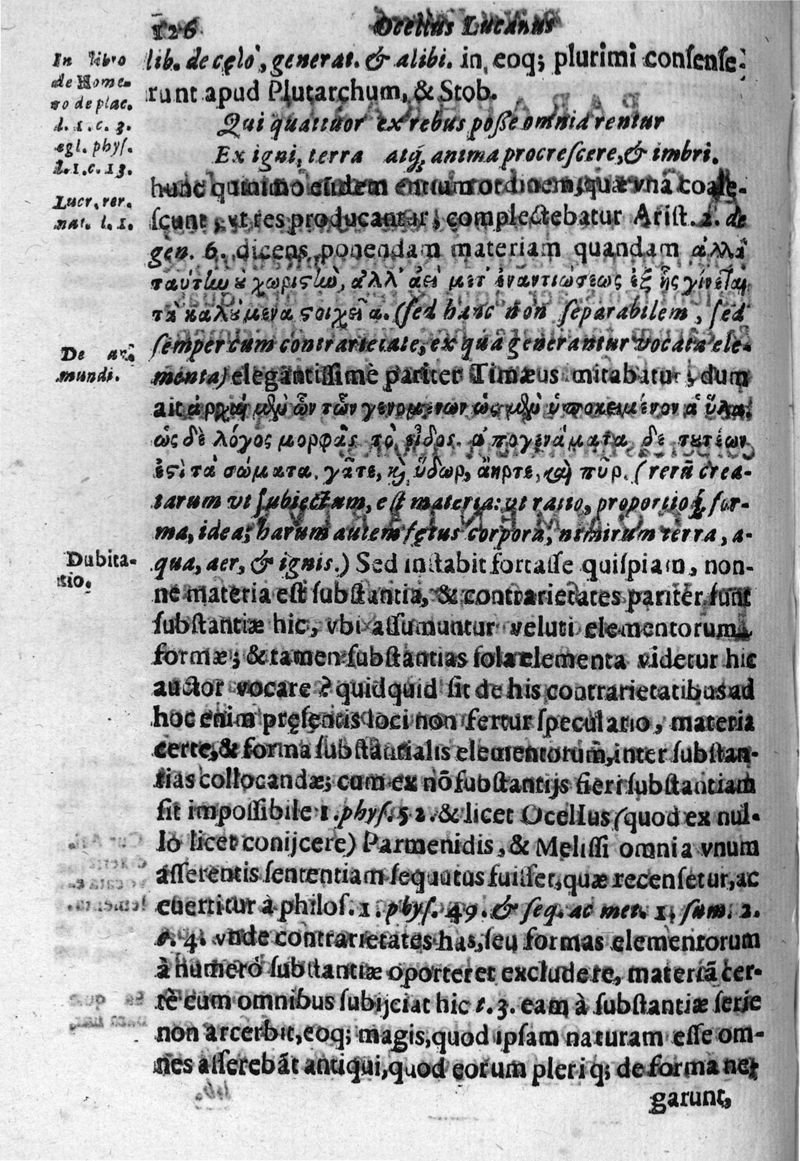 126 Ocellus Lucanus
In libro
de Home
ro de plac.
l. 1. c. 3.
egl. phys.
l. 1. c. 13.
Lucr. rer.
nat. l. 1.
lib. de cęlo, generat. & alibi. in eoq; plurimi conſenſe-
runt apud Plutarchum, & Stob.
Qui quattuor ex rebus poſſe omnia rentur
Ex igni, terra atq; anima procreſcere, & imbri.
hunc quinimo eorundem
ſcunt, vt res producantur, complectebatur Ariſt. 2. de
gen. 6. dicens ponendam materiam quandam ἀλλὰ
ταύτην ȣ χωριστὴν, ἀλλ' ἀεὶ μετ' ἐναντιώσεως ἐξ ἧς γίνεται
τὰ καλȣμενα στοιχεῖα. (ſed hanc non ſeparabilem, ſed
ſemper cum contrarietate, ex qua generantur vocata ele-
menta) elegantiſſime pariter Timæus mitabatur, dum
De aĩa
mundi.
ait ἀρχαὶ μὲν ὧν τῶν γενομένων ὡς μὲν ὑποκειμένον ἁ ὕλα,
ὡς δὲ λόγος μορφᾶς τὸ εἶδος. ἀπογενάματα δὲ τȣτέων
ἐστὶ τὰ σώματα, γᾶτε, κ̀ ὕδωρ, ἀήρτε, καὶ πῦρ. (rerũ crea-
tarum vt ſubiectum, eſt materia: ut ratio, proportioq; for-
ma, idea; harum autem fętus corpora, nimirum terra, a-
qua, aer, & ignis.) Sed inſtabit fortaſſe quiſpiam, non-
Dubita-
tio.
ne materia eſt ſubſtantia, & contrarietates pariter ſunt
ſubſtantiæ hic, vbi aſſumuntur veluti elementorum
formæ; & tamen ſubſtantias ſola elementa videtur hic
auctor vocare? quidquid ſit de his contrarietatibus ad
hoc enim pręſentis loci non fertur ſpeculatio, materia
certe, & forma ſubſtantialis elementorũ, inter ſubſtan-
tias collocandæ; cum ex nõ ſubſtantijs fieri ſubſtantiam
ſit impoſſibile 1. phyſ. 52. & licet Ocellus (quod ex nul-
lo licet conijcere) Parmenidis, & Meliſſi omnia vnum
aſſerentis ſententiam ſequutus fuiſſet, quæ recenſetur, ac
euertitur à philoſ. 1. phyſ. 49. & ſeq. ac met. 1. ſum. 2.
c. 4. vnde contrarietates has, ſeu formas elementorum
à numero ſubſtantiæ oporteret excludere, materiã cer-
tè cum omnibus ſubijciat hic t. 3. eam à ſubſtantiæ ſerie
non arcerbit, eoq; magis, quod ipſam naturam eſſe om-
nes aſſerebãt antiqui, quod eorum pleriq; de forma ne-
garunt,